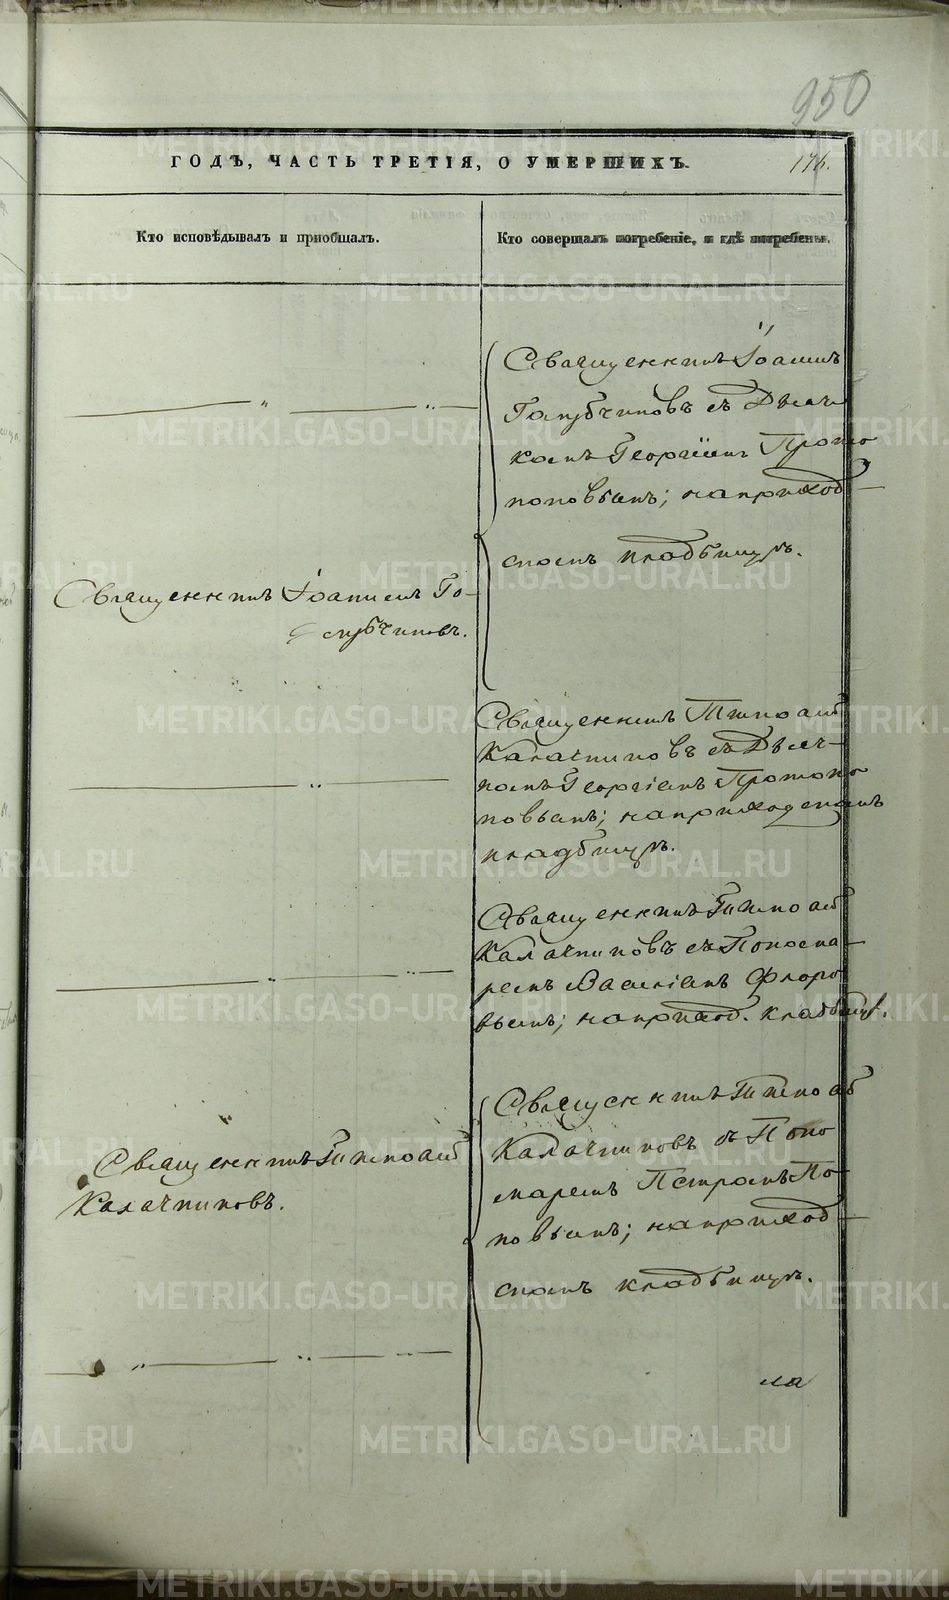 950
ГОДЪ, ЧАСТЬ ТРЕТІЯ, О УМЕРШИХЪ.
176.
Кто исповѣдывалъ и приобщалъ.
Кто совершалъ погребеніе, и гдѣ погребены.
Священникъ Іоаннъ
Голубчиковъ съ Дьяч-
комъ Георгіемъ Прото
поповымъ; на приход-
скомъ кладбищѣ.
Священникъ Іоаннъ Го-
лубчиковъ.
Священникъ Тимоѳей
Калачниковъ съ Дьяч-
комъ Георгіемъ Протопо
повымъ; на приходскомъ
кладбищѣ.
Священникъ Тимоѳей
Калачниковъ съ Понома-
ремъ Василіемъ Флоро
вымъ; на приход. кладбищѣ.
Священникъ Тимоѳей
Калачниковъ.
Священникъ Тимоѳей
Калачниковъ съ Поно
маремъ Петромъ По-
повымъ; на приход-
скомъ кладбищѣ.
METRIKI.GASO-URAL.RU